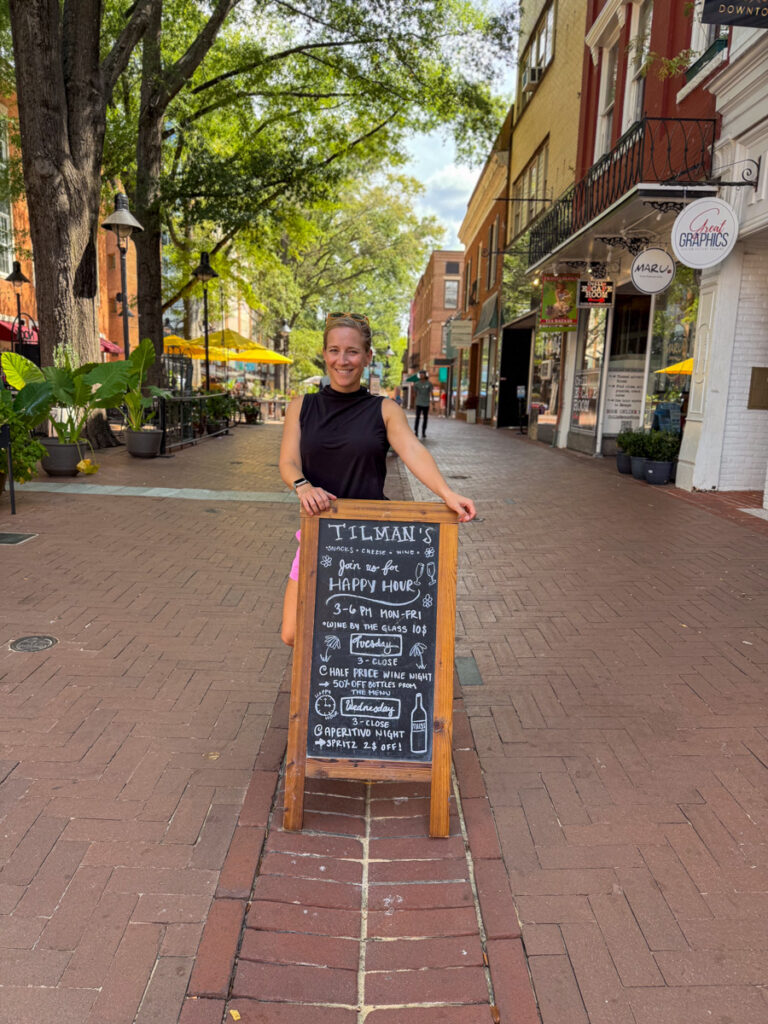 DOWNTO
Great
GRAPHICS
MARU
TILMAN'S
SNACKS • CHEESE • WINE
Join us for
HAPPY HOUR
3-6 PM MON-FRI
•WINE BY THE GLASS 10$
Tuesday
3-CLOSE
HALF PRICE WINE NIGHT
→ 50% OFF BOTTLES FROM
THE MENU
HAPPY
Wednesday
3-CLOSE
APERITIVO NIGHT
→ SPRITZ 2$ OFF!